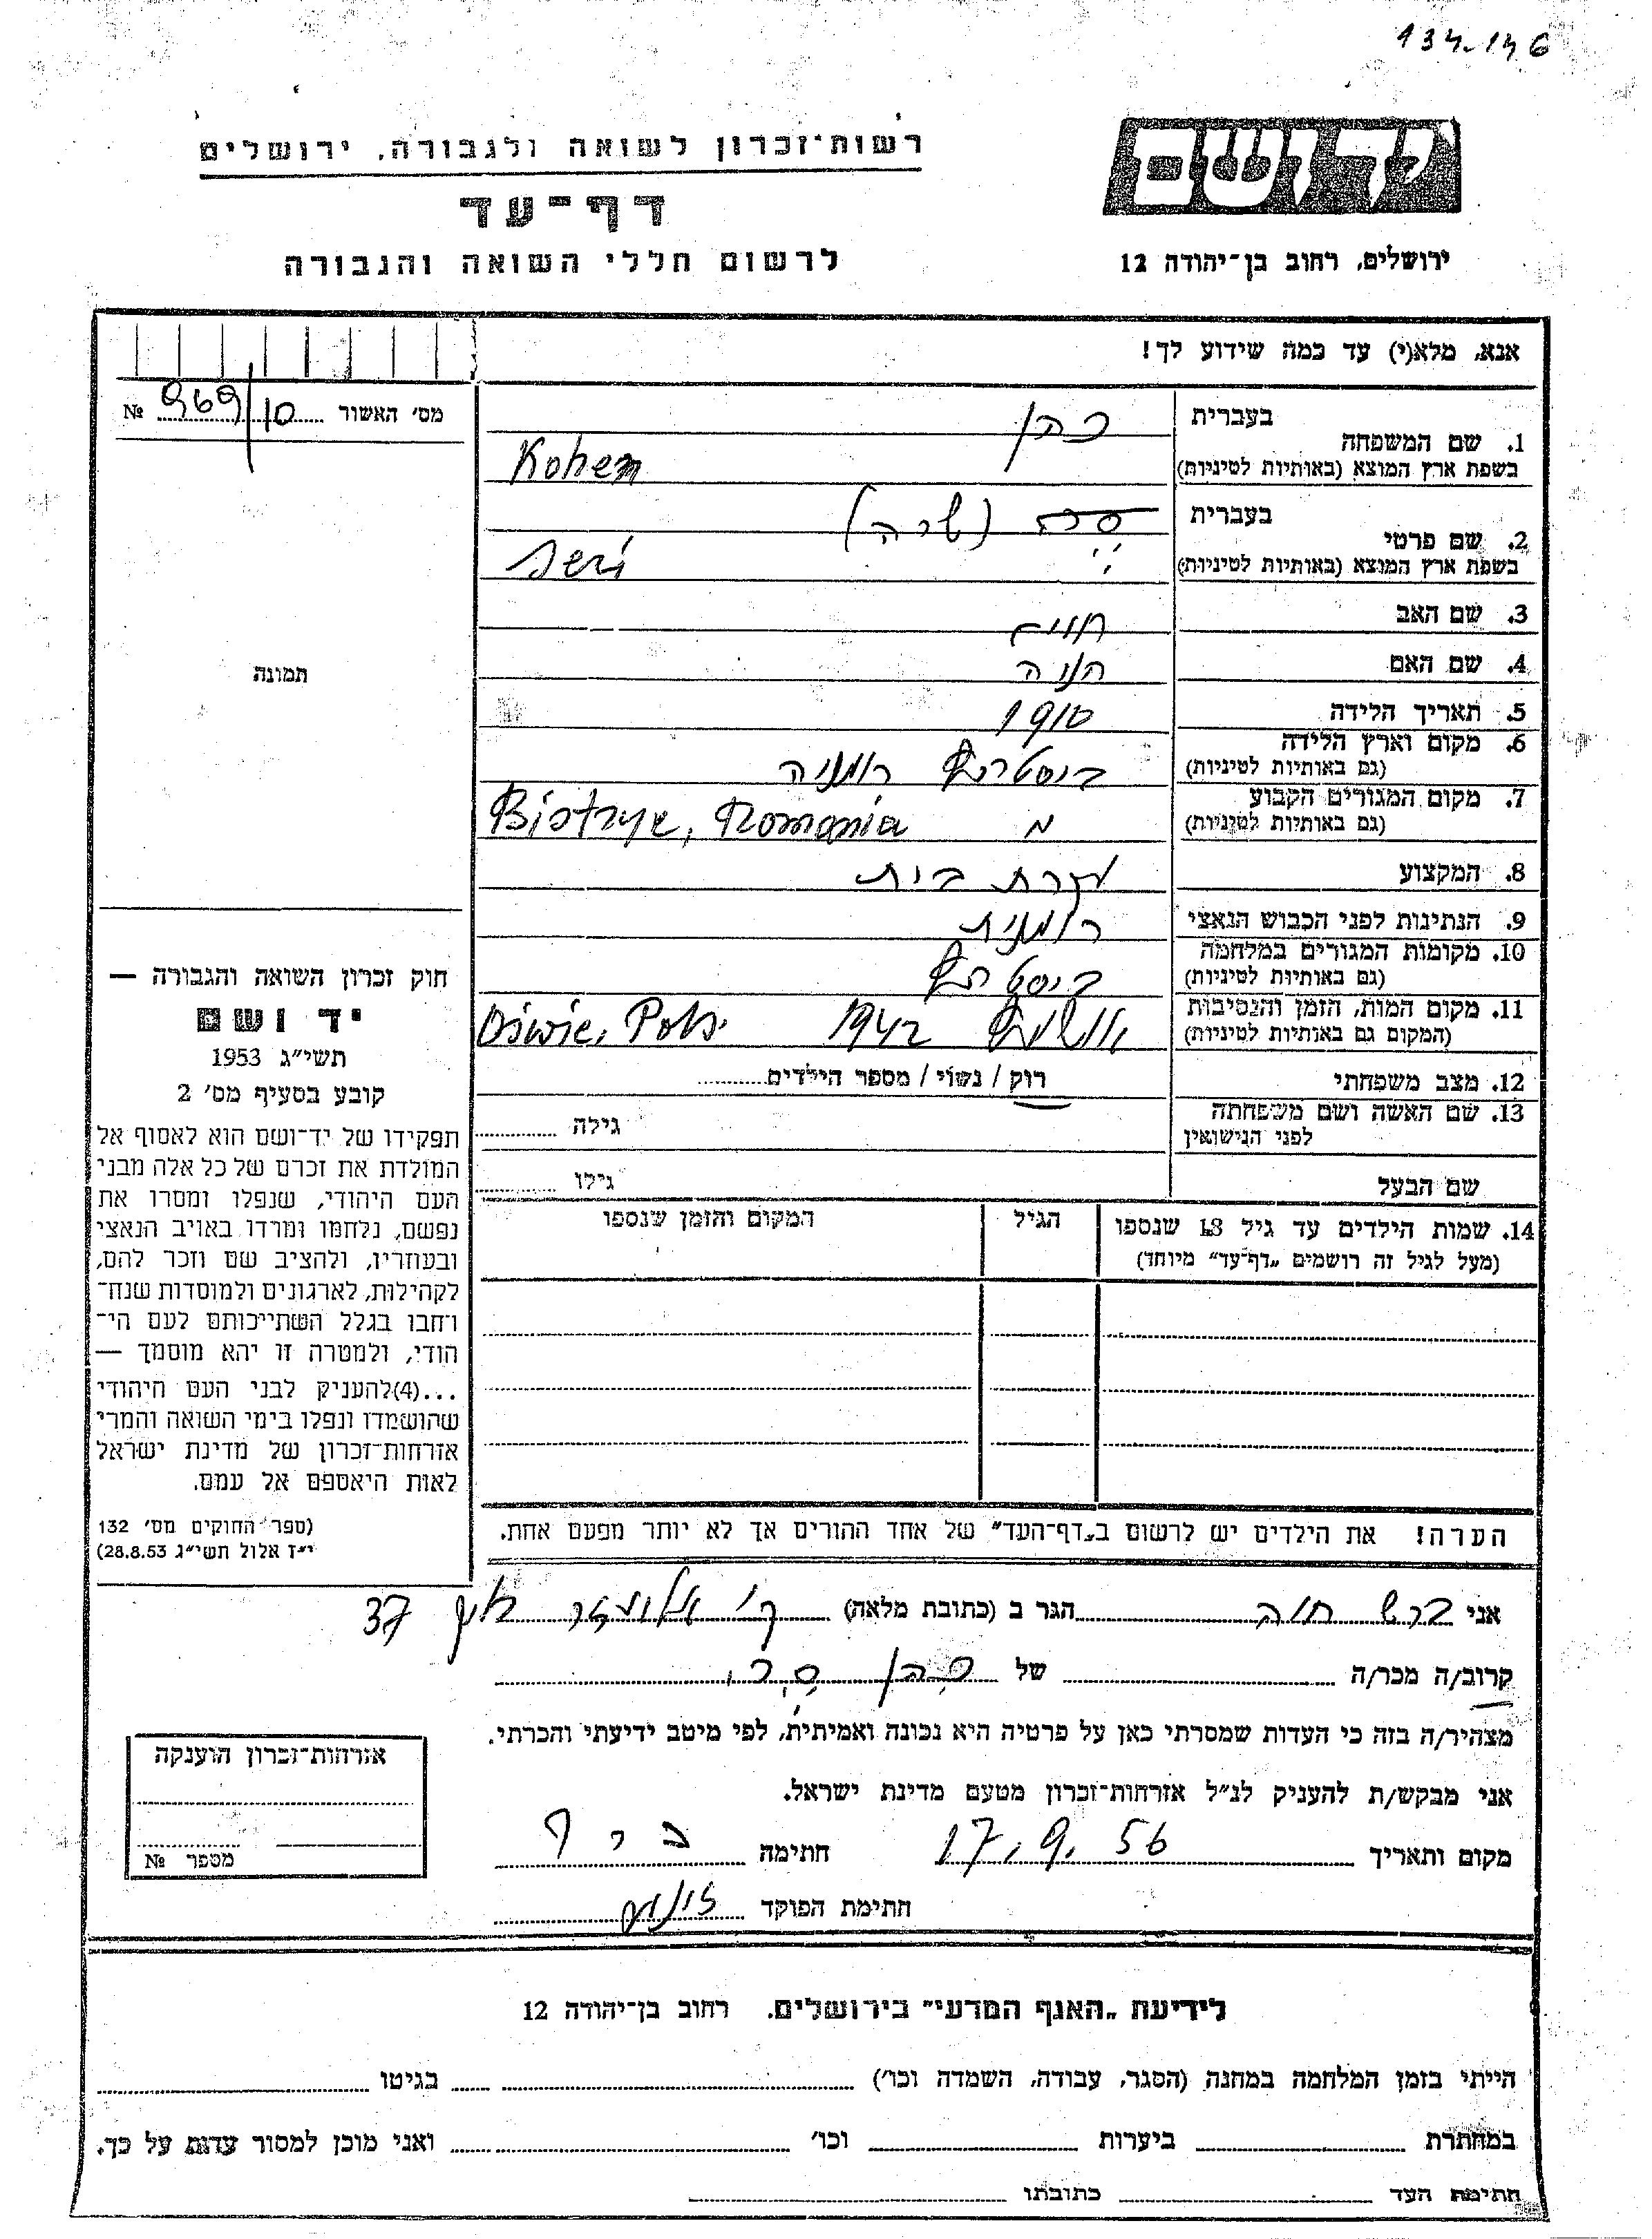 134-146
יד ושם
רשות־זכרון לשואה ולגבורה, ירושלים
דף־עד
לרשום חללי השואה והגבורה
ירושלים, רחוב בן־יהודה 12
אנא, מלא(י) עד כמה שידוע לך!
מס׳ האשור 969/10 №
בעברית כהן
1. שם המשפחה
בשפת ארץ המוצא (באותיות לטיניות) Kohen
בעברית (שרה)
2. שם פרטי
בשפת ארץ המוצא (באותיות לטיניות) Seri
3. שם האב חיים
4. שם האם חנה
5. תאריך הלידה 1910
6. מקום וארץ הלידה
(גם באותיות לטיניות) רומניה
7. מקום המגורים הקבוע
(גם באותיות לטיניות) Romania
8. המקצוע עקרת בית
9. הנתינות לפני הכבוש הנאצי רומנית
10. מקומות המגורים במלחמה
(גם באותיות לטיניות)
11. מקום המות, הזמן והנסיבות
(המקום גם באותיות לטיניות) 1942
12. מצב משפחתי רוק / נשוי / מספר הילדים
13. שם האשה ושם משפחתה
לפני הנישואין גילה
שם הבעל גילו
14. שמות הילדים עד גיל 18 שנספו הגיל המקום והזמן שנספו
(מעל לגיל זה רושמים „דף־עד״ מיוחד)
הערה! את הילדים יש לרשום ב„דף־העד״ של אחד ההורים אך לא יותר מפעם אחת.
תמונה
חוק זכרון השואה והגבורה —
יד ושם
תשי״ג 1953
קובע בסעיף מס׳ 2
תפקידו של יד־ושם הוא לאסוף אל
המולדת את זכרם של כל אלה מבני
העם היהודי, שנפלו ומסרו את
נפשם, נלחמו ומרדו באויב הנאצי
ובעוזריו, ולהציב שם וזכר להם,
לקהילות, לארגונים ולמוסדות שנח־
רבו בגלל השתייכותם לעם הי־
הודי, ולמטרה זו יהא מוסמך —
...(4)להעניק לבני העם היהודי
שהושמדו ונפלו בימי השואה והמרי
אזרחות־זכרון של מדינת ישראל
לאות היאספם אל עמם.
(ספר החוקים מס׳ 132
י״ז אלול תשי״ג 28.8.53)
אני חוה הגר ב (כתובת מלאה) ק׳ 37
קרוב/ה מכר/ה של כהן
מצהיר/ה בזה כי העדות שמסרתי כאן על פרטיה היא נכונה ואמיתית, לפי מיטב ידיעתי והכרתי.
אני מבקש/ת להעניק לנ״ל אזרחות־זכרון מטעם מדינת ישראל.
מקום ותאריך 17.9.56 חתימה
חתימת הפוקד
אזרחות־זכרון הוענקה
מספר №
לידיעת „האגף המדעי״ בירושלים, רחוב בן־יהודה 12
הייתי בזמן המלחמה במחנה (הסגר, עבודה, השמדה וכו׳) בגיטו
במחתרת ביערות וכו׳ ואני מוכן למסור עדות על כך.
חתימת העד כתובתו